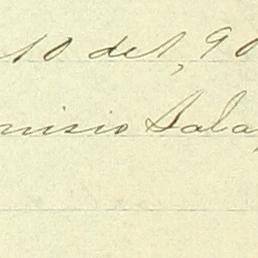 10 del, 90
nisio Sala